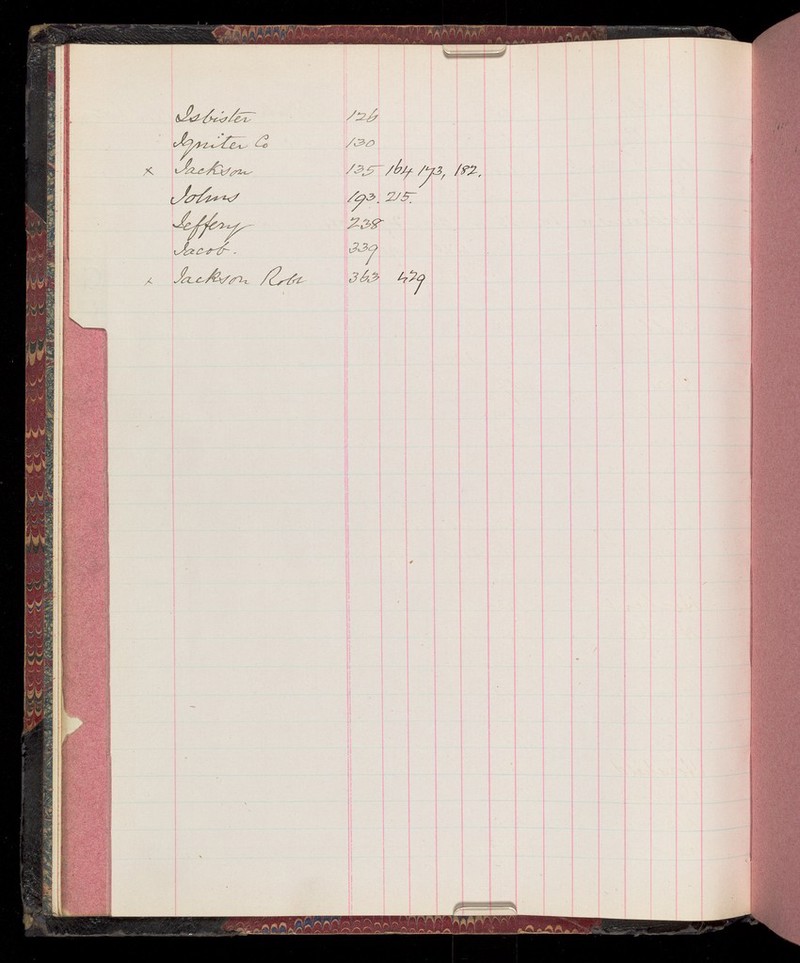 Isbister 126
Igniter Co 130
x Jackson 135 164 173, 182.
Johns 193. 215.
Jeffery 238
Jacob. 339
x Jackson Robt 363 429